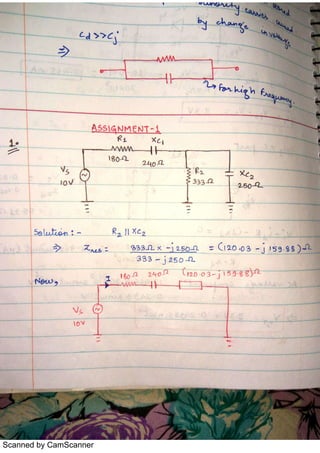 minority carriers
by change in voltage.
Cd >> Cj
⇒
↳ For high frequency.
ASSIGNMENT-1
1.
R1 XC1
180Ω 240Ω
VS
10V
R2
333Ω
XC2
250Ω
Solution :- R2 || XC2
⇒ Zres = 333Ω x -j250Ω / 333 - j250Ω = (120.03 - j 159.88)Ω
Now, I 180Ω 240Ω (120.03 - j159.88)Ω
VS
10V
Scanned by CamScanner